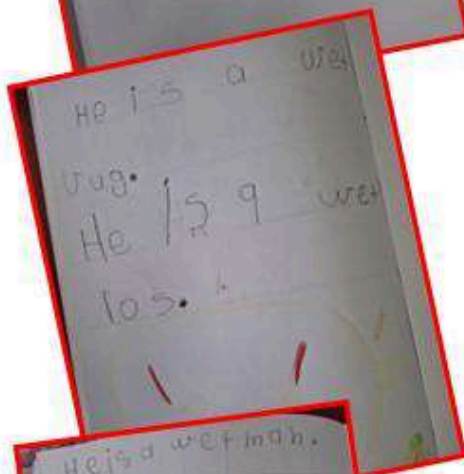 He is a wet
vug.
He is a wet
los.
He is a wet man.